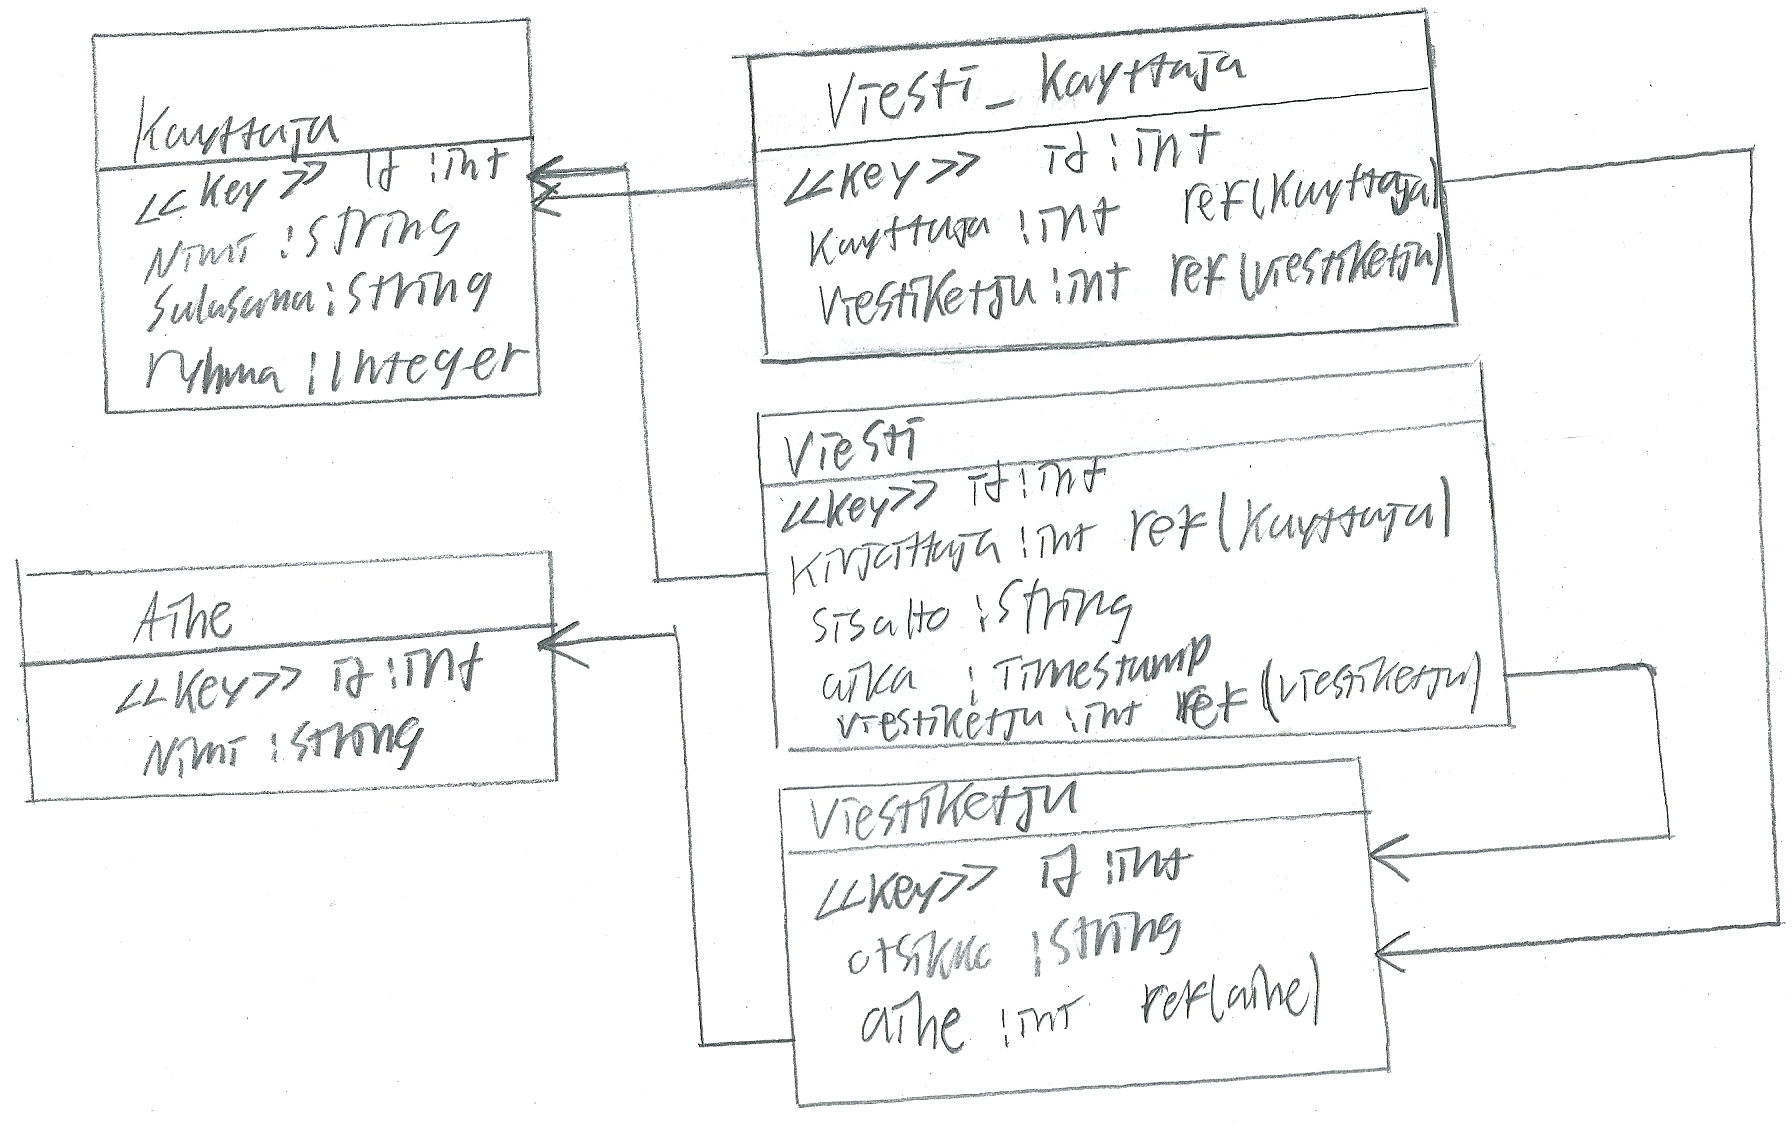 Kayttaja
<<key>> id : int
Nimi : string
Salasana : string
ryhma : Integer
Viesti_Kayttaja
<<key>> id : int
Kayttaja : int ref(Kayttaja)
Viestiketju : int ref(viestiketju)
Viesti
<<key>> id : int
Kirjoittaja : int ref(Kayttaja)
sisalto : string
aika : Timestamp
viestiketju : int ref(viestiketju)
Aihe
<<key>> id : int
Nimi : string
Viestiketju
<<key>> id : int
otsikko : string
aihe : int ref(aihe)